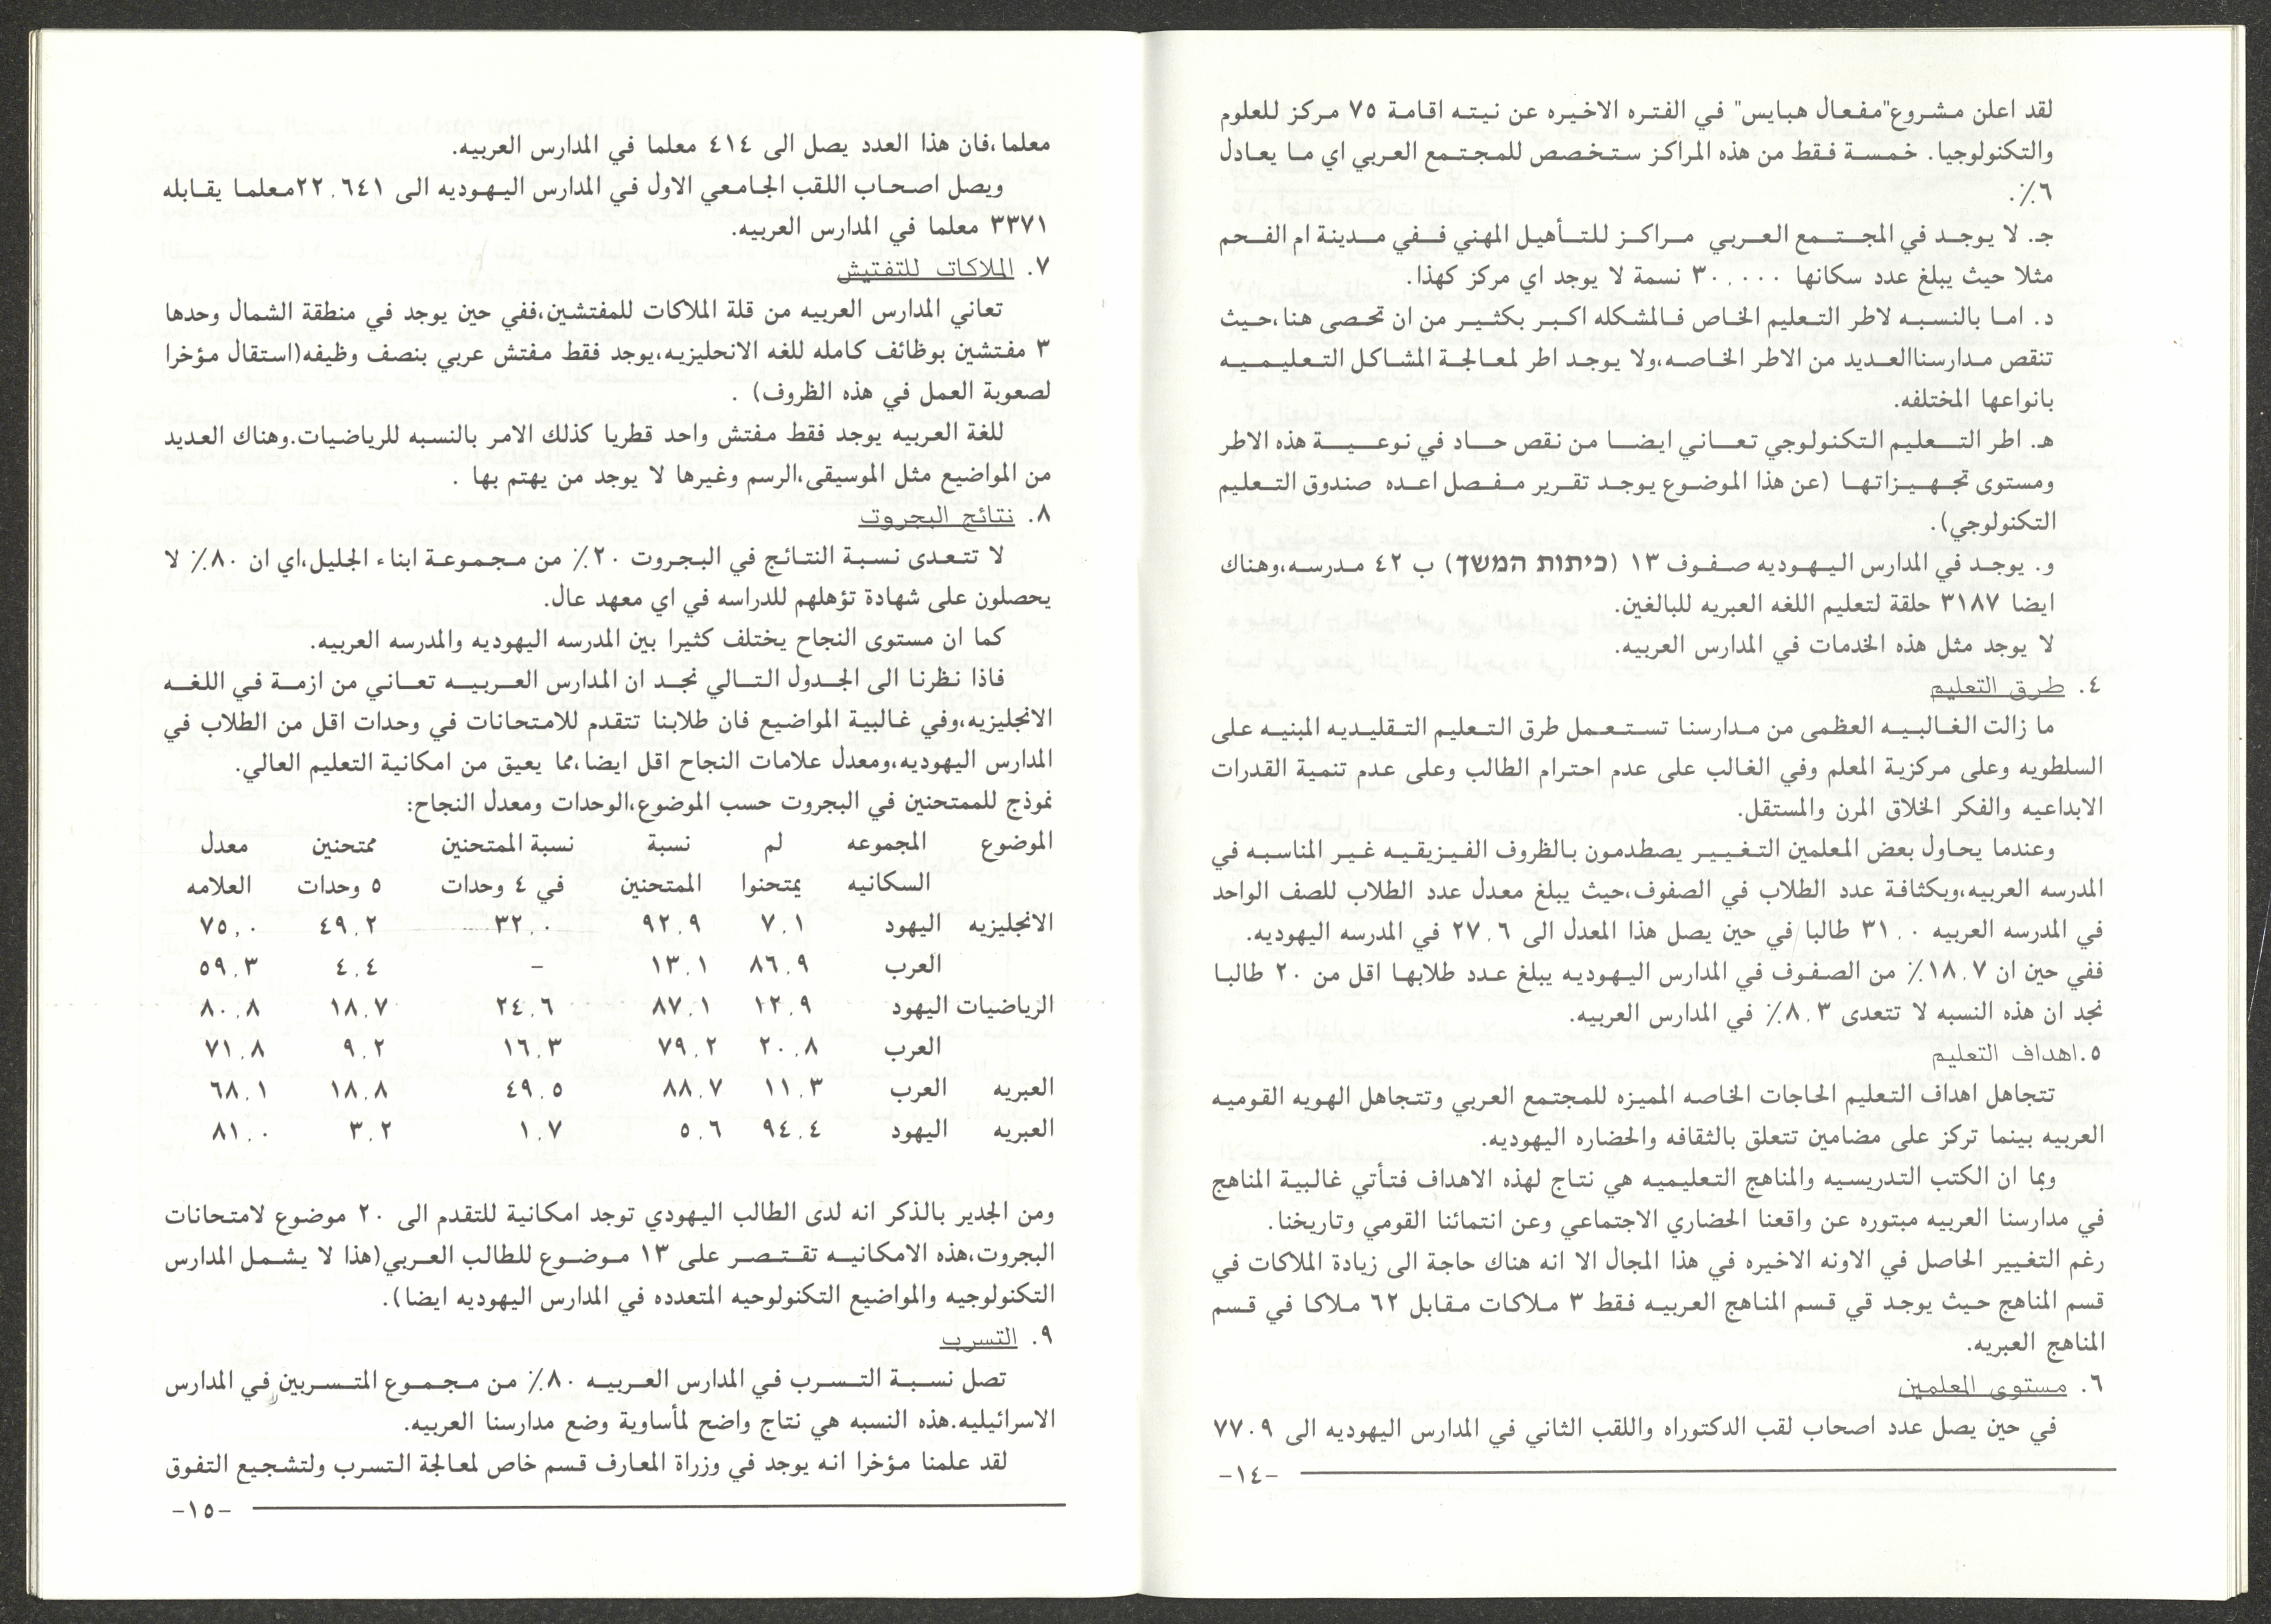 لقد اعلن مشروع"مفعال هبايس" في الفتره الاخيره عن نيته اقامة ٧٥ مركز للعلوم
والتكنولوجيا. خمسة فقط من هذه المراكز ستخصص للمجتمع العربي اي ما يعادل
٦٪.
جـ. لا يوجد في المجتمع العربي مراكز للتأهيل المهني ففي مدينة ام الفحم
مثلا حيث يبلغ عدد سكانها ٣٠,٠٠٠ نسمة لا يوجد اي مركز كهذا.
د. اما بالنسبه لاطر التعليم الخاص فالمشكله اكبر بكثير من ان تحصى هنا،حيث
تنقص مدارسناالعديد من الاطر الخاصه،ولا يوجد اطر لمعالجة المشاكل التعليميه
بانواعها المختلفه.
هـ. اطر التعليم التكنولوجي تعاني ايضا من نقص حاد في نوعية هذه الاطر
ومستوى تجهيزاتها (عن هذا الموضوع يوجد تقرير مفصل اعده صندوق التعليم
التكنولوجي).
و. يوجد في المدارس اليهوديه صفوف ١٣ (כיתות המשך) ب ٤٢ مدرسه،وهناك
ايضا ٣١٨٧ حلقة لتعليم اللغه العبريه للبالغين.
لا يوجد مثل هذه الخدمات في المدارس العربيه.
٤. طرق التعليم
ما زالت الغالبيه العظمى من مدارسنا تستعمل طرق التعليم التقليديه المبنيه على
السلطويه وعلى مركزية المعلم وفي الغالب على عدم احترام الطالب وعلى عدم تنمية القدرات
الابداعيه والفكر الخلاق المرن والمستقل.
وعندما يحاول بعض المعلمين التغيير يصطدمون بالظروف الفيزيقيه غير المناسبه في
المدرسه العربيه،وبكثافة عدد الطلاب في الصفوف،حيث يبلغ معدل عدد الطلاب للصف الواحد
في المدرسه العربيه ٣١,٠ طالبا في حين يصل هذا المعدل الى ٢٧,٦ في المدرسه اليهوديه.
ففي حين ان ١٨,٧٪ من الصفوف في المدارس اليهوديه يبلغ عدد طلابها اقل من ٢٠ طالبا
نجد ان هذه النسبه لا تتعدى ٨,٣٪ في المدارس العربيه.
٥.اهداف التعليم
تتجاهل اهداف التعليم الحاجات الخاصه المميزه للمجتمع العربي وتتجاهل الهويه القوميه
العربيه بينما تركز على مضامين تتعلق بالثقافه والحضاره اليهوديه.
وبما ان الكتب التدريسيه والمناهج التعليميه هي نتاج لهذه الاهداف فتأتي غالبية المناهج
في مدارسنا العربيه مبتوره عن واقعنا الحضاري الاجتماعي وعن انتمائنا القومي وتاريخنا.
رغم التغيير الحاصل في الاونه الاخيره في هذا المجال الا انه هناك حاجة الى زيادة الملاكات في
قسم المناهج حيث يوجد قي قسم المناهج العربيه فقط ٣ ملاكات مقابل ٦٢ ملاكا في قسم
المناهج العبريه.
٦. مستوى المعلمين
في حين يصل عدد اصحاب لقب الدكتوراه واللقب الثاني في المدارس اليهوديه الى ٧٧٠٩
-١٤-
معلما،فان هذا العدد يصل الى ٤١٤ معلما في المدارس العربيه.
ويصل اصحاب اللقب الجامعي الاول في المدارس اليهوديه الى ٢٢,٦٤١معلما يقابله
٣٣٧١ معلما في المدارس العربيه.
٧. الملاكات للتفتيش
تعاني المدارس العربيه من قلة الملاكات للمفتشين،ففي حين يوجد في منطقة الشمال وحدها
٣ مفتشين بوظائف كامله للغه الانحليزيه،يوجد فقط مفتش عربي بنصف وظيفه(استقال مؤخرا
لصعوبة العمل في هذه الظروف) .
للغة العربيه يوجد فقط مفتش واحد قطريا كذلك الامر بالنسبه للرياضيات.وهناك العديد
من المواضيع مثل الموسيقى،الرسم وغيرها لا يوجد من يهتم بها .
٨. نتائج البجروت
لا تتعدى نسبة النتائج في البجروت ٢٠٪ من مجموعة ابناء الجليل،اي ان ٨٠٪ لا
يحصلون على شهادة تؤهلهم للدراسه في اي معهد عال.
كما ان مستوى النجاح يختلف كثيرا بين المدرسه اليهوديه والمدرسه العربيه.
فاذا نظرنا الى الجدول التالي نجد ان المدارس العربيه تعاني من ازمة في اللغه
الانجليزيه،وفي غالبية المواضيع فان طلابنا تتقدم للامتحانات في وحدات اقل من الطلاب في
المدارس اليهوديه،ومعدل علامات النجاح اقل ايضا،مما يعيق من امكانية التعليم العالي.
نموذج للممتحنين في البجروت حسب الموضوع،الوحدات ومعدل النجاح:
الموضوع المجموعه لم نسبة نسبة الممتحنين ممتحنين معدل
السكانيه يمتحنوا الممتحنين في ٤ وحدات ٥ وحدات العلامه
الانجليزيه اليهود ٧,١ ٩٢,٩ ٣٢,٠ ٤٩,٢ ٧٥,٠
العرب ٨٦,٩ ١٣,١ - ٤,٤ ٥٩,٣
الرياضيات اليهود ١٢,٩ ٨٧,١ ٢٤,٦ ١٨,٧ ٨٠,٨
العرب ٢٠,٨ ٧٩,٢ ١٦,٣ ٩,٢ ٧١,٨
العبريه العرب ١١,٣ ٨٨,٧ ٤٩,٥ ١٨,٨ ٦٨,١
العبريه اليهود ٩٤,٤ ٥,٦ ١,٧ ٣,٢ ٨١,٠
ومن الجدير بالذكر انه لدى الطالب اليهودي توجد امكانية للتقدم الى ٢٠ موضوع لامتحانات
البجروت،هذه الامكانيه تقتصر على ١٣ موضوع للطالب العربي(هذا لا يشمل المدارس
التكنولوجيه والمواضيع التكنولوحيه المتعدده في المدارس اليهوديه ايضا).
٩. التسرب
تصل نسبة التسرب في المدارس العربيه ٨٠٪ من مجموع المتسربين في المدارس
الاسرائيليه.هذه النسبه هي نتاج واضح لمأساوية وضع مدارسنا العربيه.
لقد علمنا مؤخرا انه يوجد في وزراة المعارف قسم خاص لمعالجة التسرب ولتشجيع التفوق
-١٥-